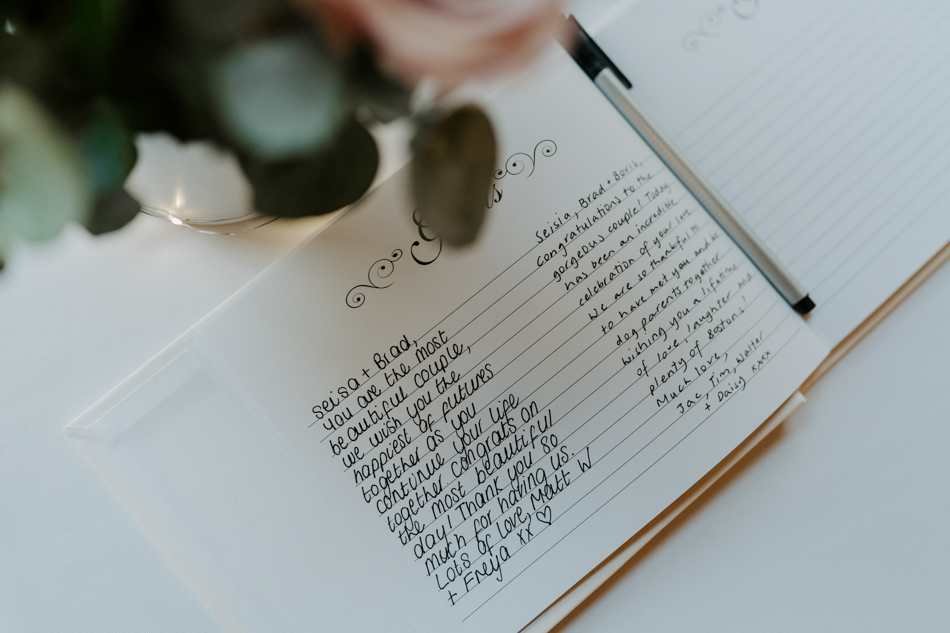 seisa + Brad,
you are the most
beautiful couple,
we wish you the
happiest of futures
together as you
continue your life
together congrats on
the most beautiful
day! Thank you so
much for having us.
Lots of love, Matt W
+ Freya xx ♡
Seisia, Brad + Boris,
congratulations to the
gorgeous couple! Today
has been an incredible
celebration of your love
We are so thankful to
to have met you and be
dog parents together.
Wishing you a lifetime
of love, laughter and
plenty of Bostons!
Much love,
Jac, Tim, Walter
+ Daisy xxxx